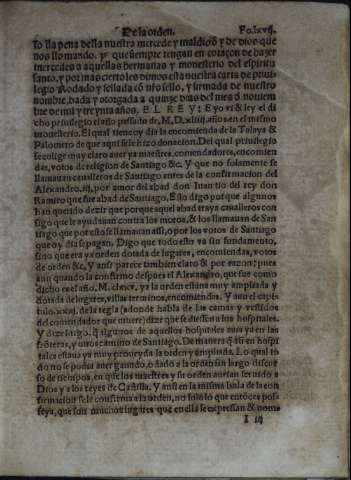 De la orden. Fo.lxvij.
so la pena della nuestra merced y maldiciõ y de dios que
nos lo mando. Y que siempre tengan en coraçon de hazer
mercedes a aquellas hermanas y monesterio del espiritu
santo, y por mas cierto les dimos esta nuestra carta de priui
legio Rodado y sellada cõ mio sello, y firmada de nuestro
nombre, dada y otorgada a quinze dias del mes d nouiem
bre de mil y treynta años, EL REY: E yo vi &ley el di
cho priuilegio el año passado de, M,D,xliiij, años en el mismo
monesterio. El qual tiene oy dia la encomienda de la Atalaya &
Palomero de que aqui se le hizo donacion. Del qual priuilegio
se colige muy claro auer ya maestre, comendadores, encomien
das, votos de religion de Santiago &c. Y que no solamente se
llamauan caualleros de Santiago antes de la confirmacion del
Alexandro.iij, por amor del abad don Iuan tio del rey don
Ramiro que fue abad de Santiago, Esto digo porque algunos
han querido dezir que porque aquel abad traya caualleros con
sigo que le ayudauan contra los moros, & los llamauan de San
tiago que por esso se llamauan assi, o por los votos de Santiago
que oy dia se pagan. Digo que todo esto va sin fundamento,
sino que era ya orden dotada de lugares, encomiendas, votos
de orden &c. Y ansi parece tambien claro & por razon: pues
aun quando la confirmo despues el Alexandro, que fue como
dicho es el año. M. clxxv, ya la orden estaua muy ampliada y
dotada de lugares, villas terminos, encomiendas. Y aun el capi
tulo.xxxj. de la regla (adonde habla de las camas y vestidos
del comendador que muere) dize que se diessen a los hospitales.
Y dize largo, q̃ algunos de aquellos hospitales auia ya en las
frõteras, y otros camino de Santiago. De manera q̃ assi en hospi
tales estaua ya muy proueyda la orden y ampliada. Lo qual to
do no se podia auer ganado, o dado a la ordẽ sin largo discur
so de tiempos, en que los maestres y su orden auian seruido a
Dios y a los reyes de Castilla. Y ansi en la misma bula de la con
firmacion se le confirma a la orden, no solo lo que entõces pos
seya, que son muchos lugares que en ella se expressan & nom
I iij